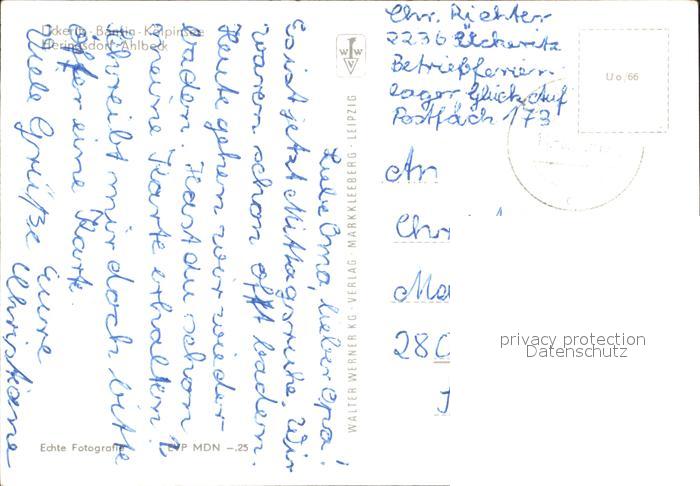 Ückeritz - Bansin - Kölpinsee
Heringsdorf - Ahlbeck
Liebe Oma, lieber Opa!
Es ist jetzt Mittagsruhe. Wir
waren schon oft baden.
Heute gehen wir wieder
baden. Hast du schon
meine Karte erhalten?
Schreibt mir doch bitte
öfter eine Karte.
Viele Grüße Eure
Christiane
Echte Fotografie EVP MDN -.25
WALTER WERNER KG · VERLAG · MARKKLEEBERG · LEIPZIG
W W V
Chr. Richter
2236 Ückeritz
Betriebferien-
lager Glück auf
Postfach 173
U o/66
An
Chr
Ma
280
privacy protection
Datenschutz